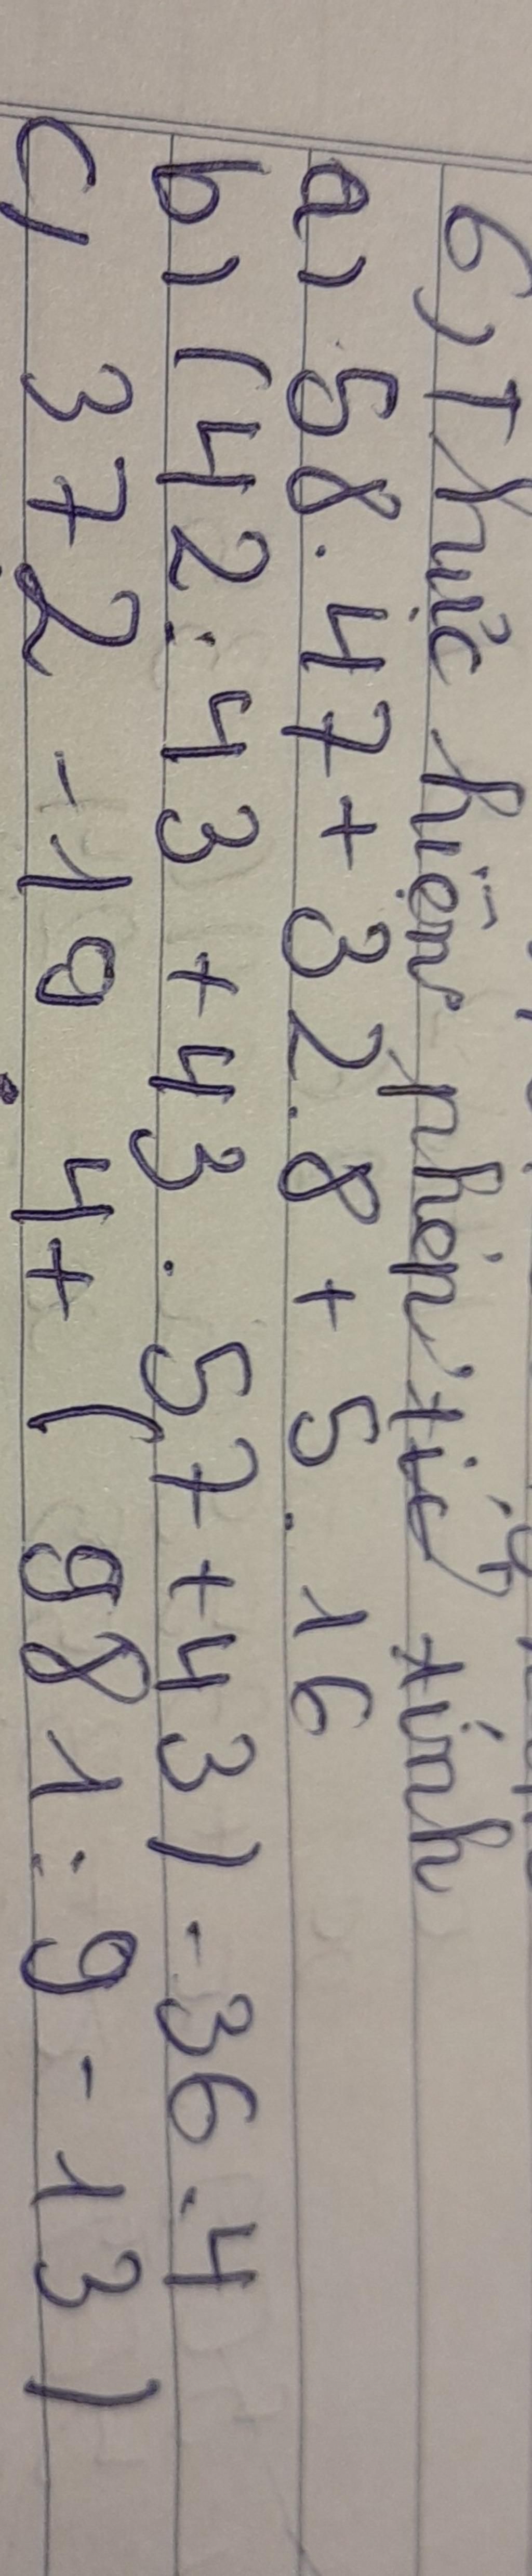 6) Thực hiện phép tính
a) 58.47 + 32.8 + 5.16
b) (42:43 + 43.57 + 43) - 36:4
c) 372 - 19 4 + ( 981 : 9 - 13 )